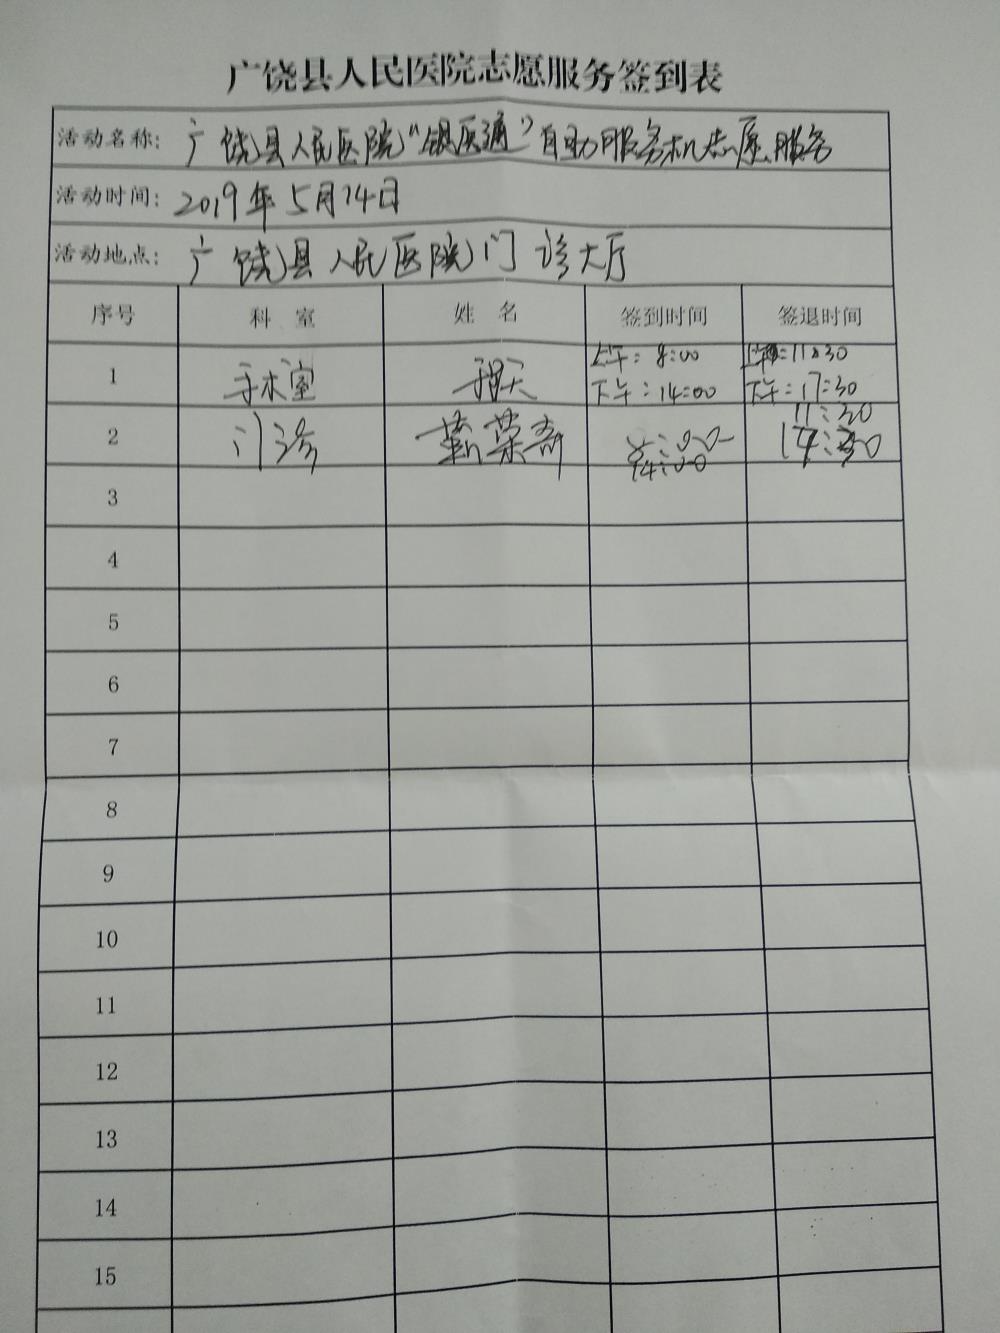 广饶县人民医院志愿服务签到表
活动名称: 广饶县人民医院“银医通”自助服务机志愿服务
活动时间: 2019年5月14日
活动地点: 广饶县人民医院门诊大厅
序号 科室 姓名 签到时间 签退时间
1 手术室 上午: 8:00 11:30
下午: 14:00 下午: 17:30
2 门诊 荣 8:00 11:30
14:00
3
4
5
6
7
8
9
10
11
12
13
14
15